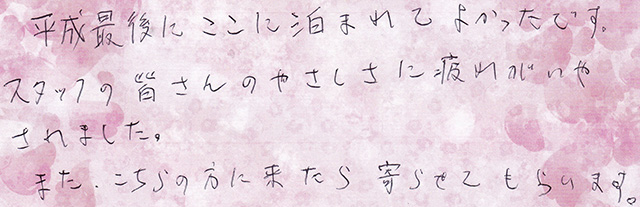 平成最後にここに泊まれてよかったです。
スタッフの皆さんのやさしさに疲れがいや
されました。
また、こちらの方に来たら寄らせてもらいます。